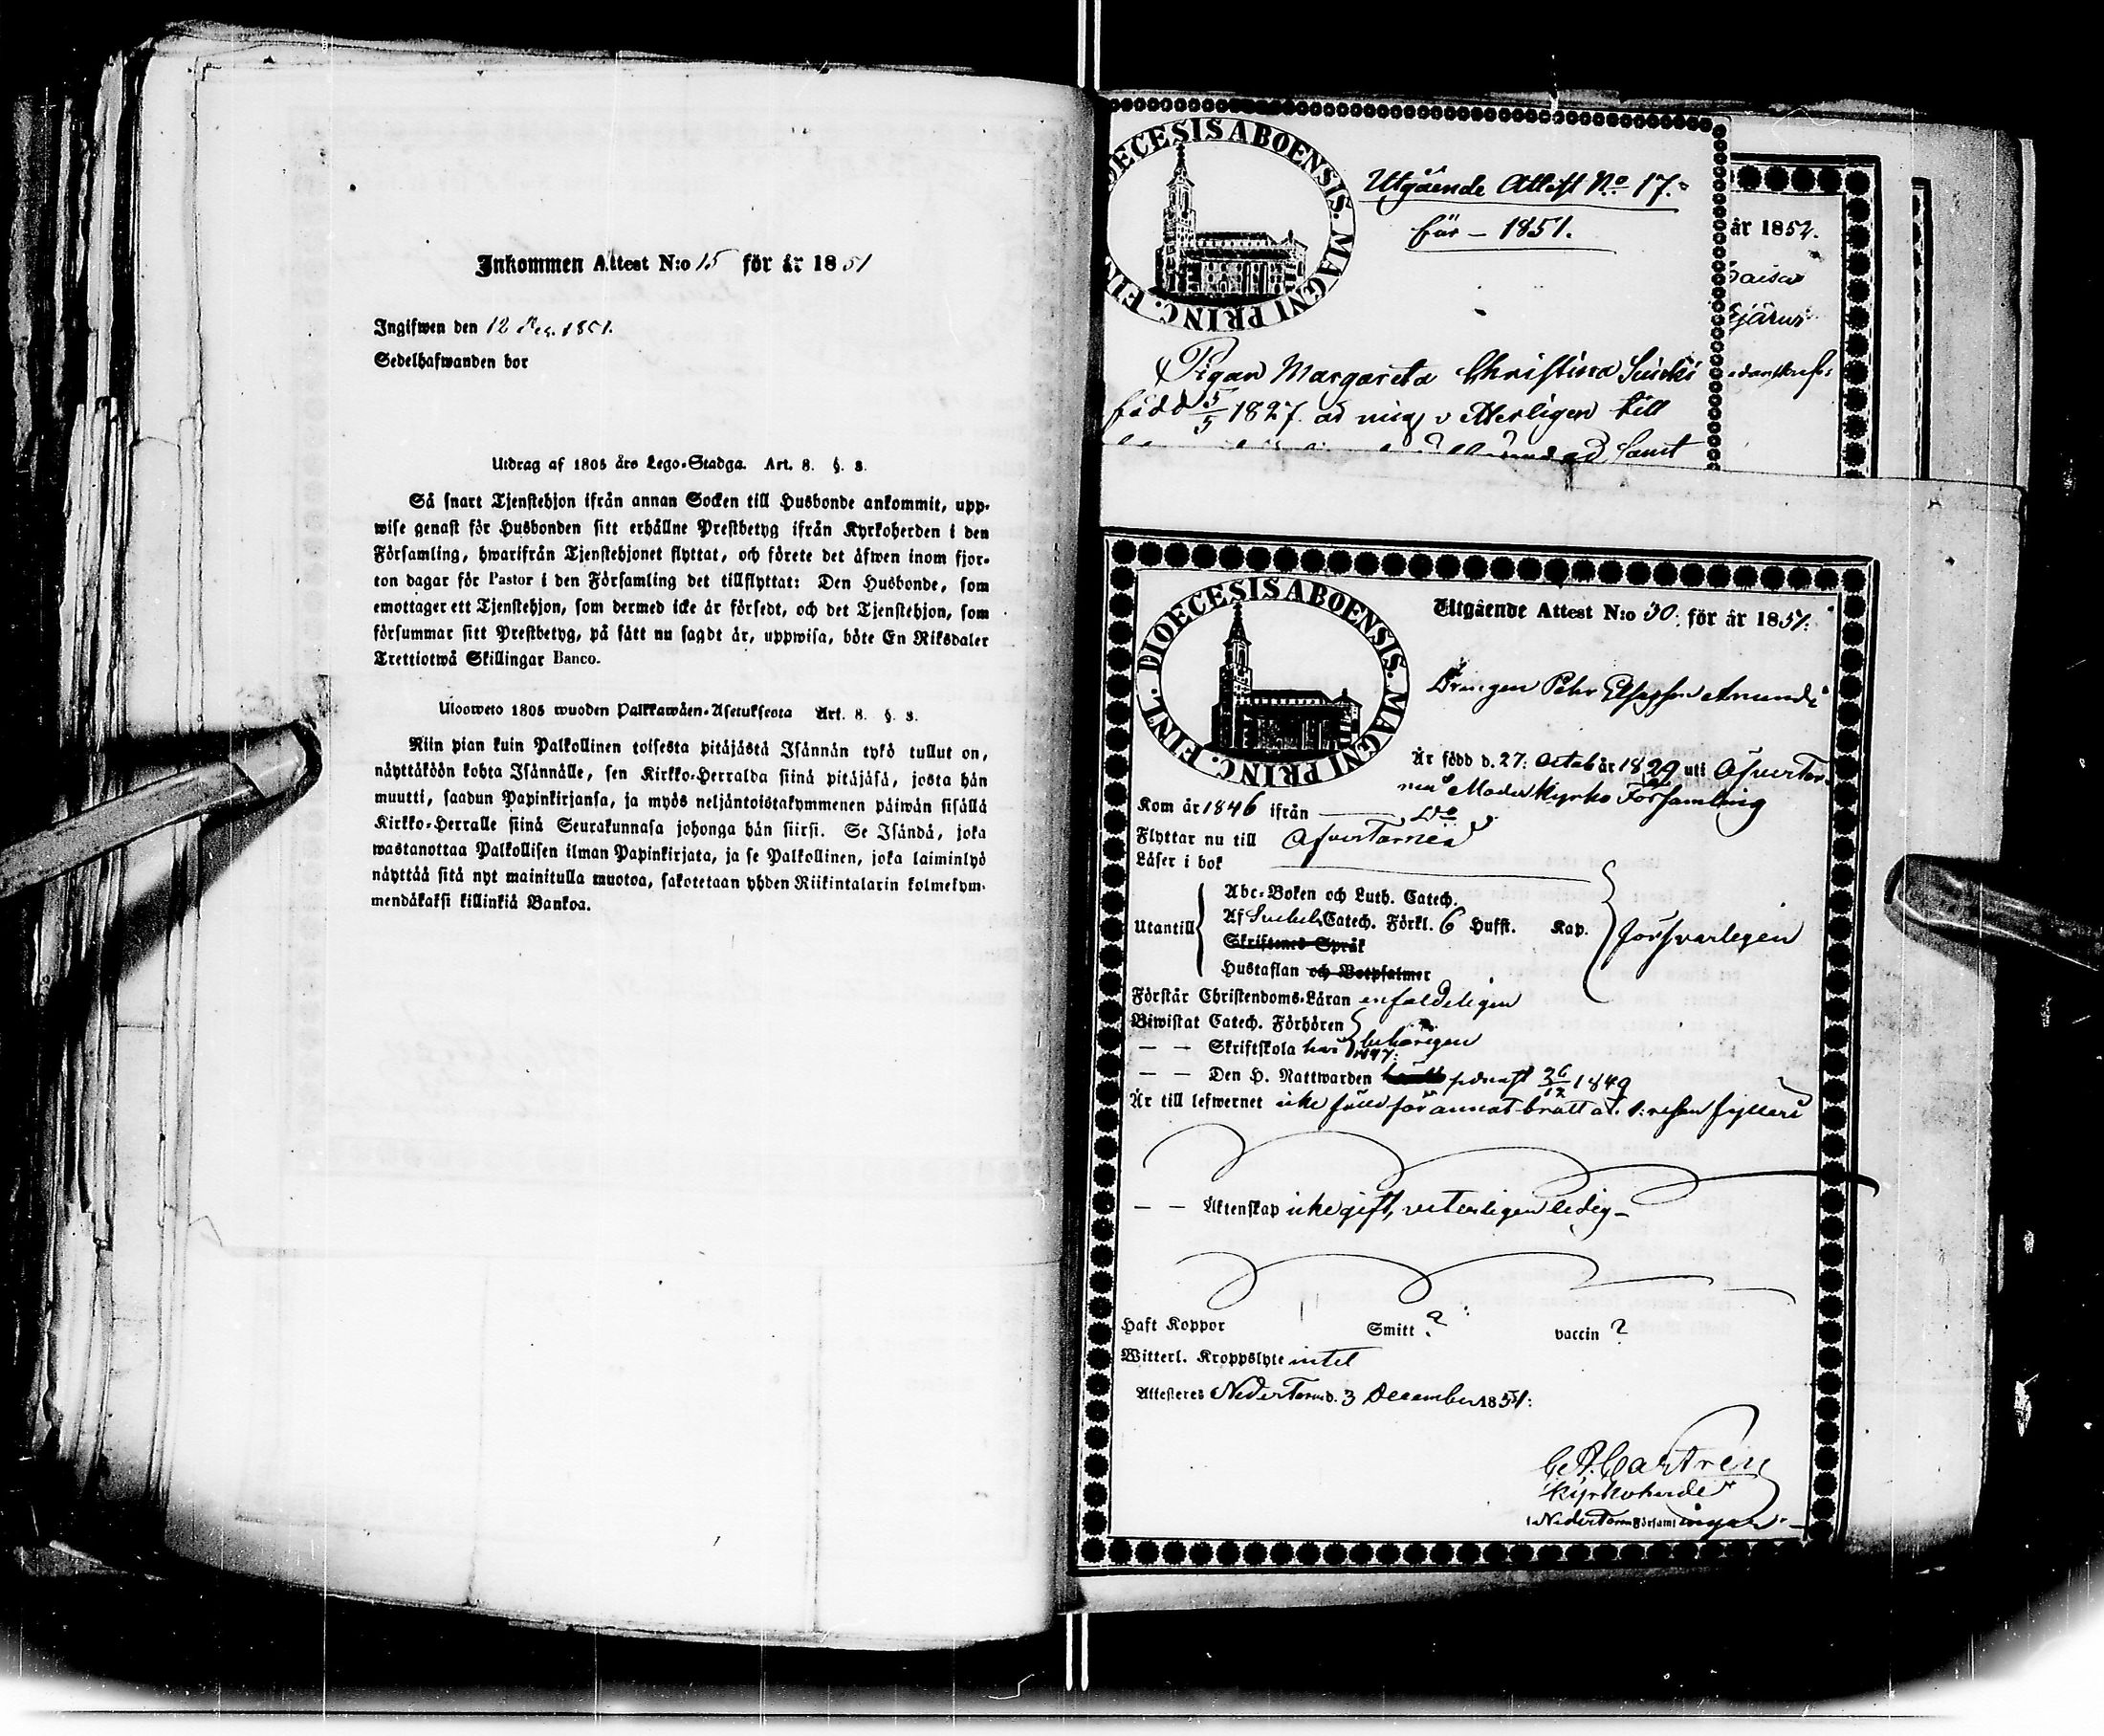 Inkommen Attest N:o 15 för år 1851
Ingifwen den 12 Dec. 1851.
Sedelhafwanden bor
Utdrag af 1805 års Lego-Stadga. Art. 8. §. 3.
Så snart Tjenstehjon ifrån annan Socken till Husbonde ankommit, upp-
wise genast för Husbonden sitt erhållne Prestbetyg ifrån Kyrkoherden i den
Församling, hwarifrån Tjenstehjonet flyttat, och förete det äfwen inom fjor-
ton dagar för Pastor i den Församling det tillflyttat: Den Husbonde, som
emottager ett Tjenstehjon, som dermed icke är försedt, och det Tjenstehjon, som
försummar sitt Prestbetyg, på sätt nu sagdt är, uppwisa, böte En Riksdaler
Trettiotwå Skillingar Banco.
Ulosweto 1805 wuoden Palkkawäen-Asetuksesta Art. 8. §. 3.
Niin pian kuin Palkollinen toisesta pitäjästä Isännän tykö tullut on,
näyttäköön kohta Isännälle, sen Kirkko-Herralda siinä pitäjäsä, josta hän
muutti, saadun Papinkirjansa, ja myös neljäntoistakymmenen päiwän sisällä
Kirkko-Herralle siinä Seurakunnasa johonga hän siirsi. Se Isändä, joka
wastanottaa Palkollisen ilman Papinkirjata, ja se Palkollinen, joka laiminlyö
näyttää sitä nyt mainitulla muotoa, sakotetaan yhden Riikintalarin kolmekym-
mendäkaksi killinkiä Bankoa.
DIOECESIS ABOENSIS. MAGNI PRINC. FIN
Utgående Attest No. 17.
för – 1851.
Pigan Margareta Christina
född 5/5 1827. ad mig vetterligen till
samt
år 185
DIOECESIS ABOENSIS. MAGNI PRINC. FINL.
Utgående Attest N:o 30. för år 1851.
Drängen Pehr
Är född d. 27. Octob år 1829 uti Öfvertor-
neå Moder Kyrko Församling
Kom år 1846 ifrån Do
Flyttar nu till Öfvertorneå
Läser i bok
Utantill
Abc-Boken och Luth. Catech.
Af Svebel. Catech. Förkl. 6 Hufst. Kap.
Skriftenes Språk
Hustaflan och Botpsalmer
försvarligen
Förstår Christendoms-Läran enfaldeligen
Biwistat Catech. Förhören behörigen
— — Skriftskola har 1847:
— — Den H. Nattwarden senast 26/12 1849
Är till lefwernet icke för annat brott
— — Äktenskap icke gift, veterligen ledig –
Haft Koppor Smitt ? vaccin ?
Witterl. Kroppslyte intet
Attesteras Neder Torneå d. 3 December 1851:
Castren
Kyrkoherde
i Neder Torneå Församlingar